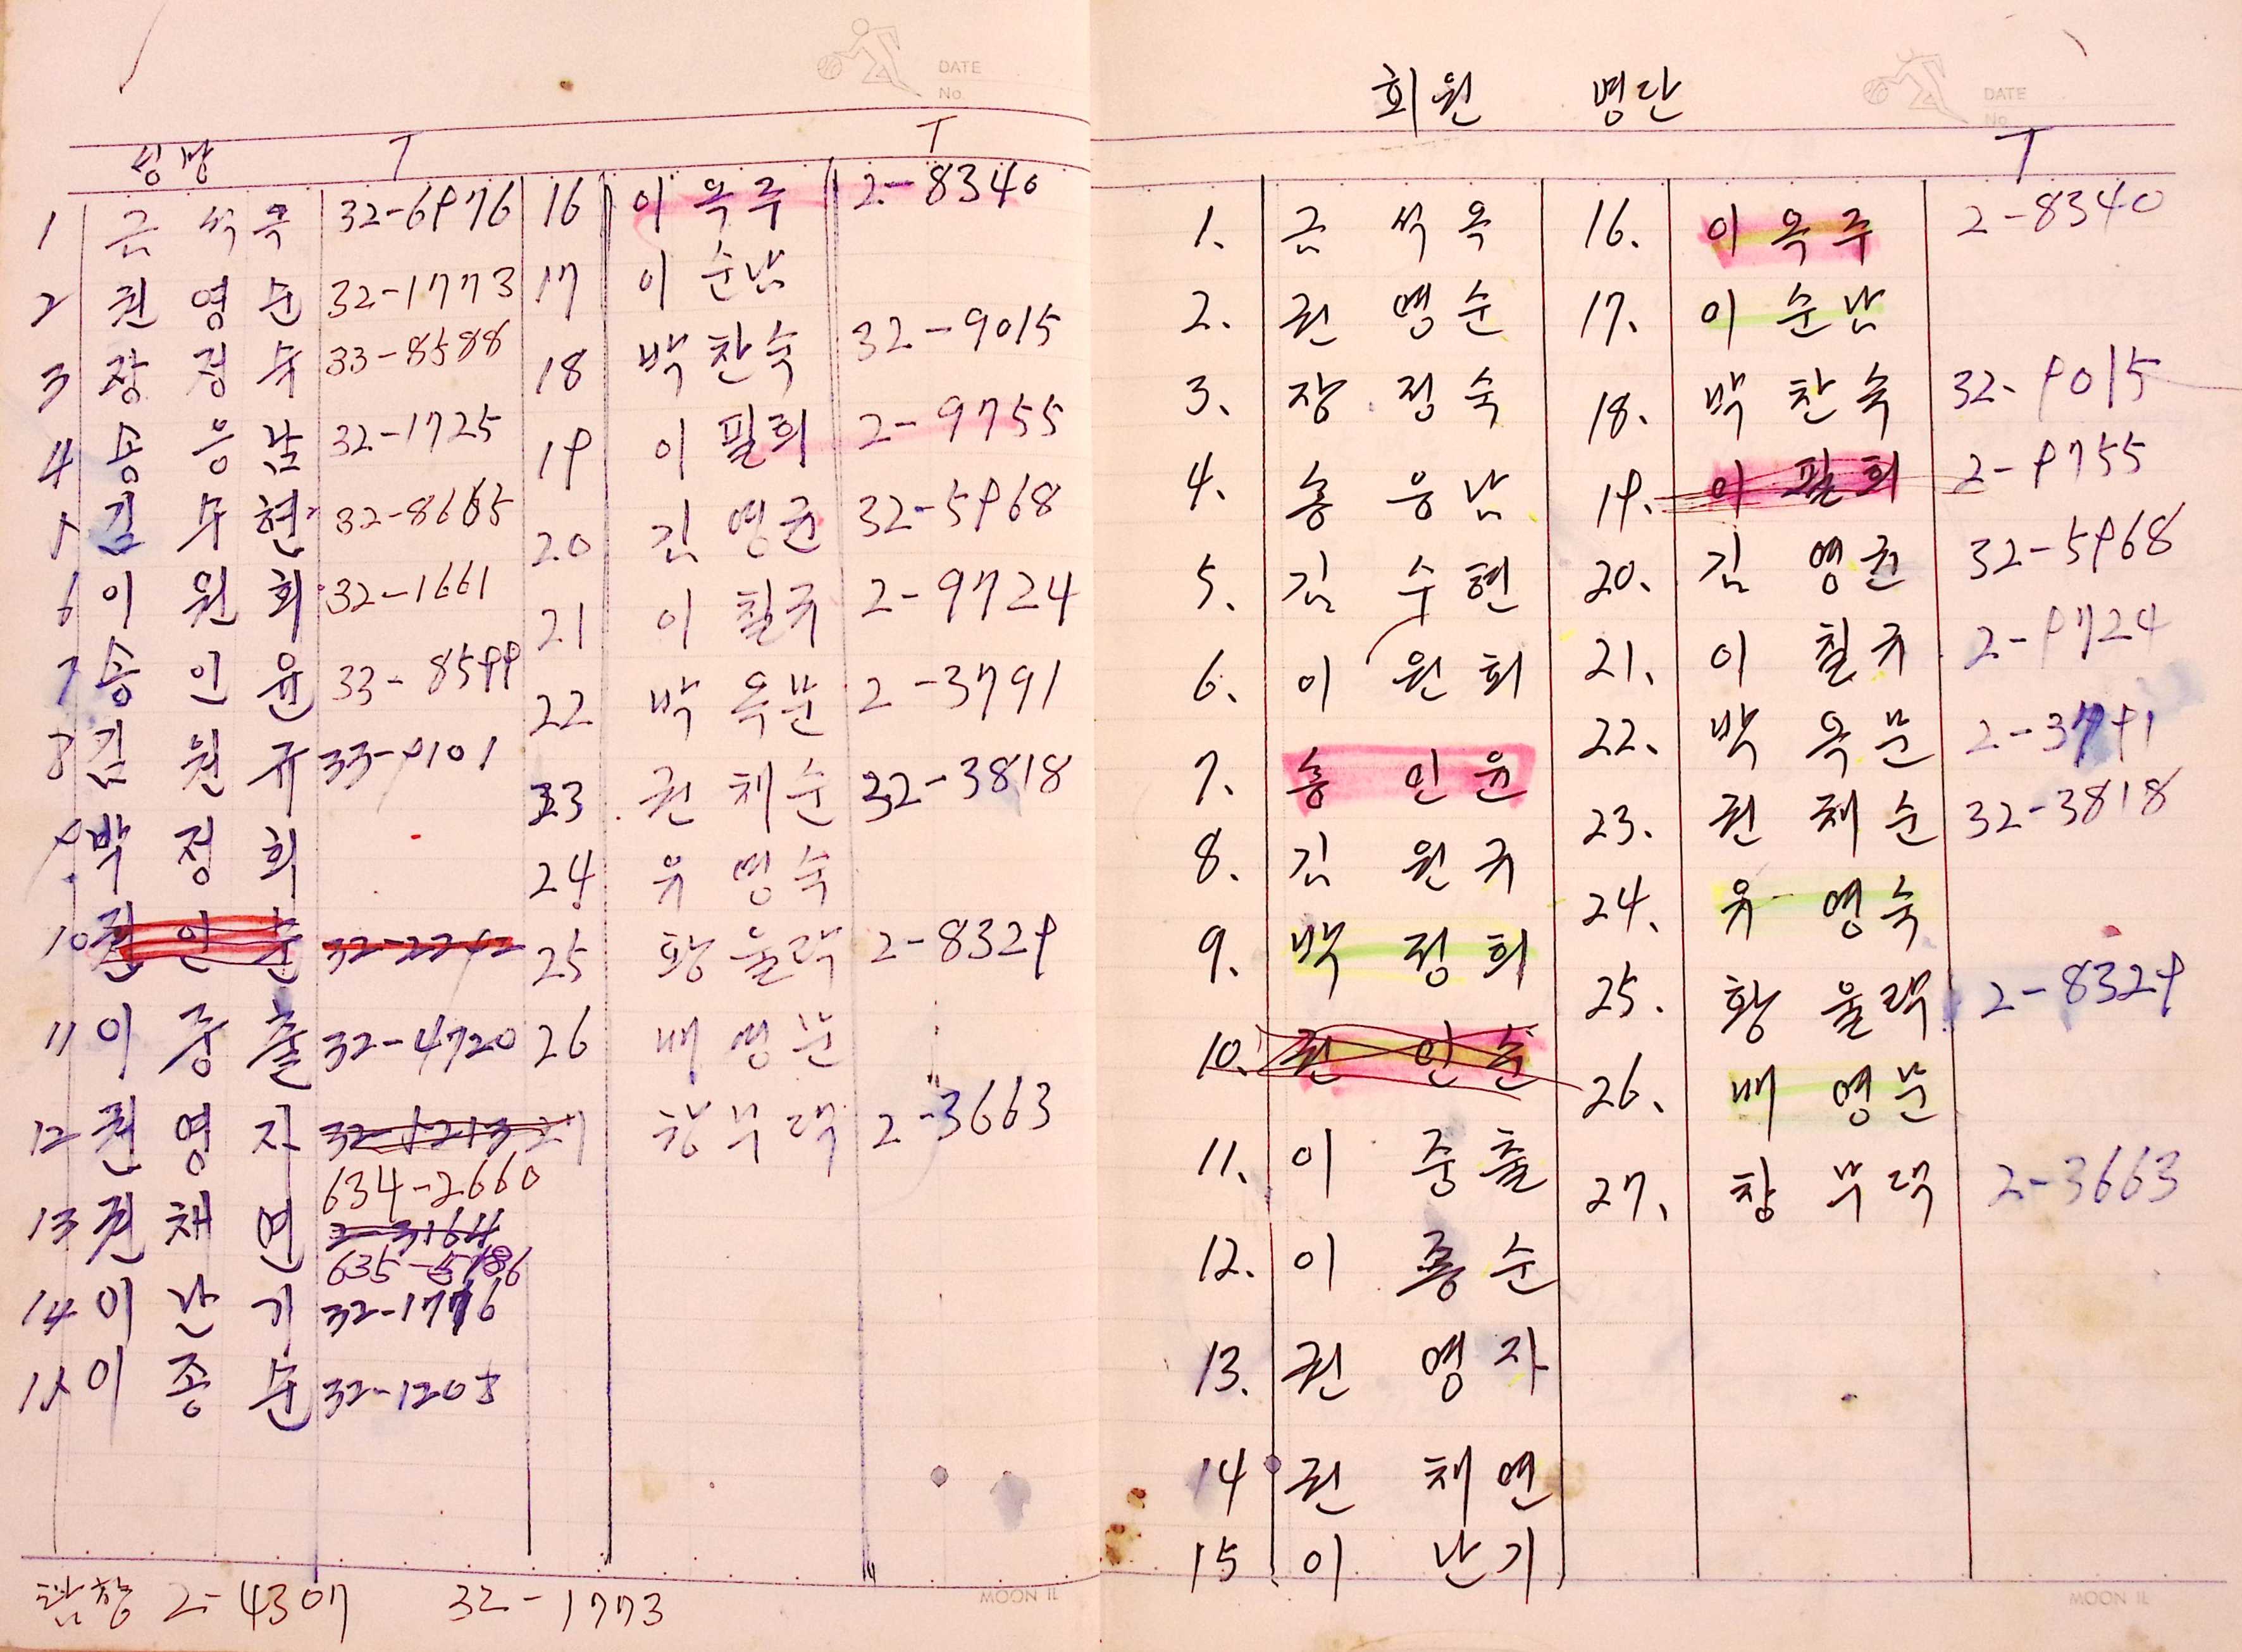 DATE
No.
성명 T T
1 금석옥 32-6976 16 이옥주 2-8340
2 권영순 32-1773 17 이순남
3 장정숙 33-8588 18 박찬숙 32-9015
4 송응남 32-1725 19 이필희 2-9755
5 김수현 32-8665 20 김영권 32-5968
6 이원희 32-1661 21 이칠규 2-9724
7 송인윤 33-8599 22 박옥분 2-3791
8 김원규 33-9101 23 권채순 32-3818
9 박정희 24 유영숙
10 권인순 32-2242 25 황울락 2-8329
11 이중출 32-4720 26 배영분
12 권영자 32-9213 27 창부댁 2-3663
634-2660
13 권채연 2-3164
635-5786
14 이난기 32-1776
15 이종순 32-1205
2-4307 32-1773
MOON IL
회원 명단
DATE
No.
T
1. 금석옥 16. 이옥주 2-8340
2. 권영순 17. 이순남
3. 장정숙 18. 박찬숙 32-9015
4. 송응남 19. 이필희 2-9755
5. 김수현 20. 김영권 32-5968
6. 이원희 21. 이칠규 2-9724
7. 송인윤 22. 박옥분 2-3791
8. 김원규 23. 권채순 32-3818
9. 박정희 24. 유영숙
10. 권인순 25. 황울택 2-8329
11. 이중출 26. 배영분
12. 이종순 27. 창부댁 2-3663
13. 권영자
14 권채연
15 이난기
MOON IL